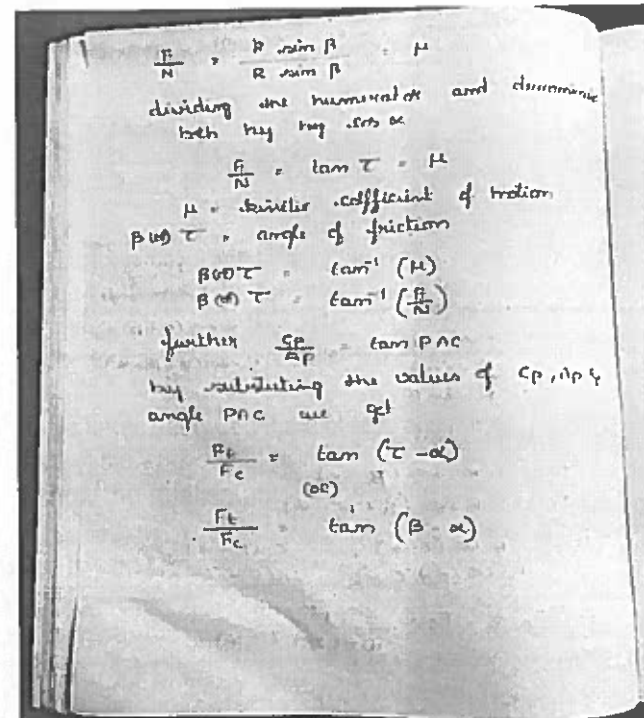 F/N = R sin β / R sin β = μ
dividing the numerator and
both by cos α
F/N = tan τ = μ
μ = kinetic coefficient of
β (or) τ = angle of friction
β (or) τ = tan⁻¹ (μ)
β (or) τ = tan⁻¹ (F/N)
further CP/AP = tan PAC
by substituting the values of CP, AP &
angle PAC we get
Ft/Fc = tan (τ - α)
(or)
Ft/Fc = tan (β - α)